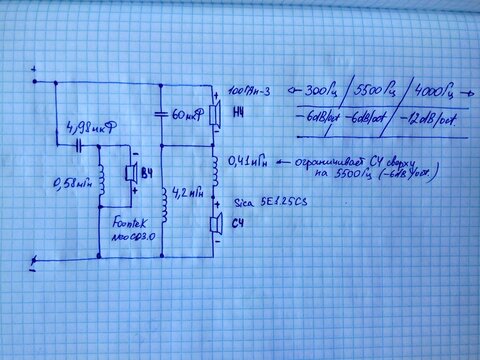 +
100ГДН-3
← 300Гц / 5500Гц / 4000Гц →
-6dB/oct / -6dB/oct / -12dB/oct
60мкФ
+
НЧ
4,98мкФ
0,41мГн ← ограничивает СЧ сверху
на 5500Гц (-6dB/oct.)
-
ВЧ
+
0,58мГн
4,2мГн
+
Sica 5E1.25CS
СЧ
Fountek
NeoCD3.0
-
-